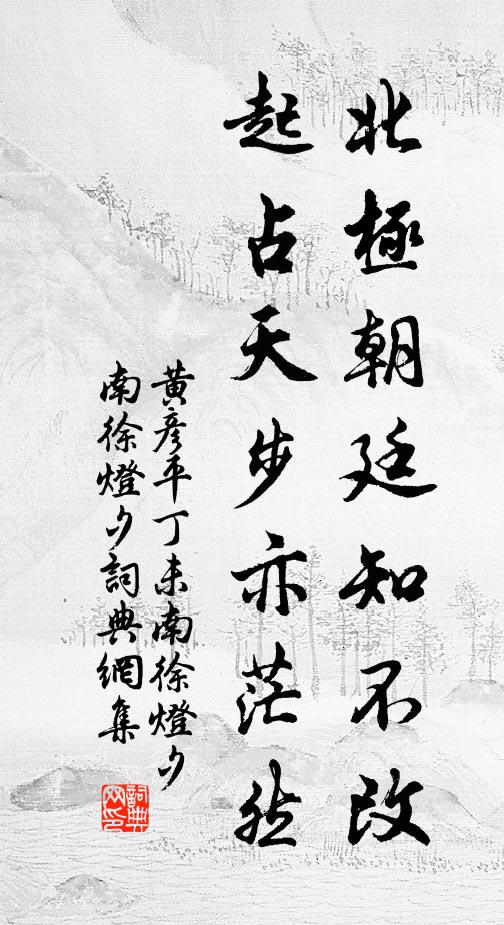 北極朝廷知不改
起占天步亦茫然
黃彥平丁未南徐燈夕
南徐燈夕詞典網集
詞典网印